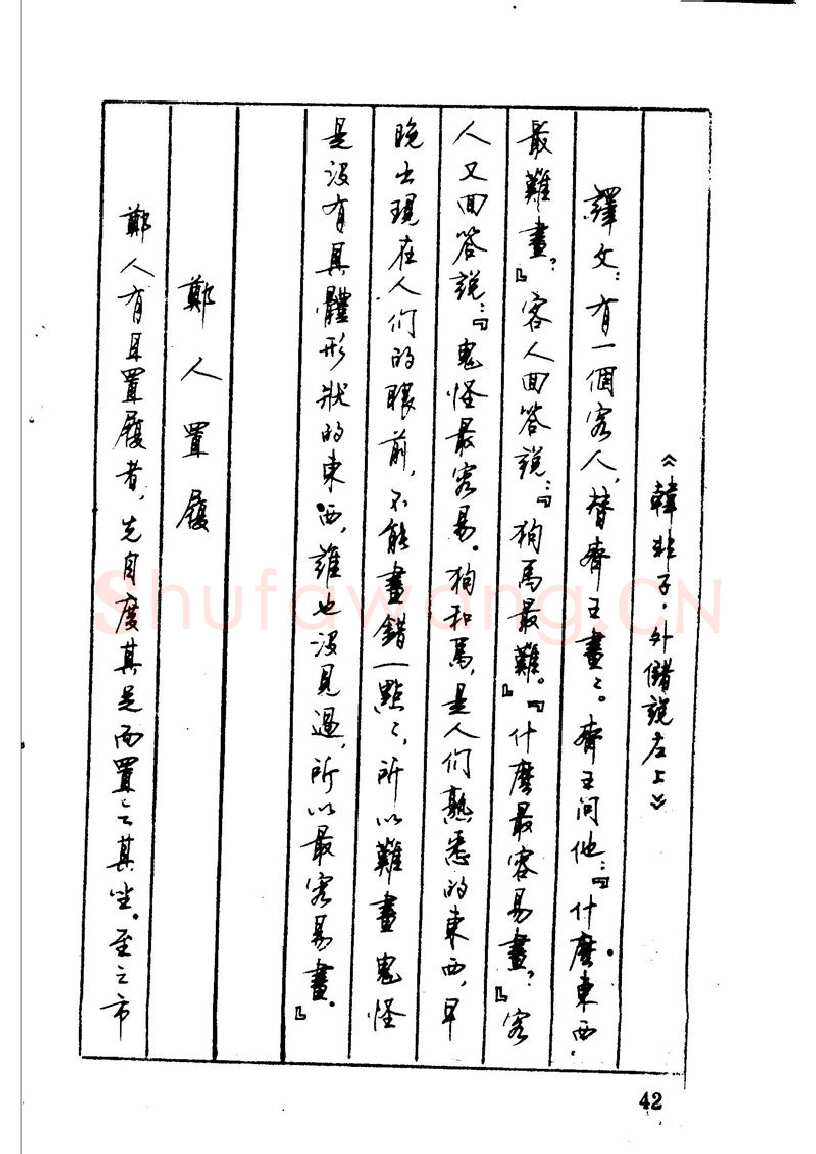 《韓非子·外儲說左上》
繹文：有一個客人，替齊王畫畫。齊王問他：『什麼東西
最難畫？』客人回答說：『狗馬最難。』『什麼最容易畫？』客
人又回答說：『鬼怪最容易。狗和馬，是人们熟悉的東西，早
晚出現在人们的眼前，不能畫錯一點點，所以難畫鬼怪
是沒有具體形狀的東西，誰也沒見過，所以最容易畫。』
鄭人置履
鄭人有且置履者，先自度其足而置之其坐。至之市
42
Shufawang.CN